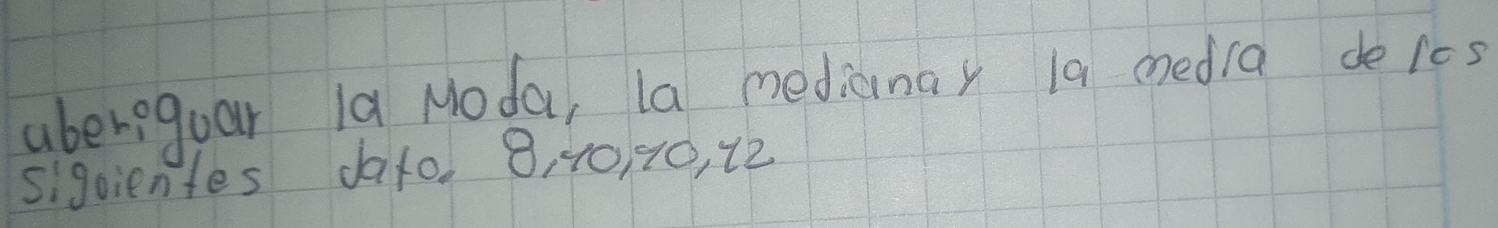 aberiguar la Moda, la mediana y la media de los
siguientes dato. 8,10,10,12